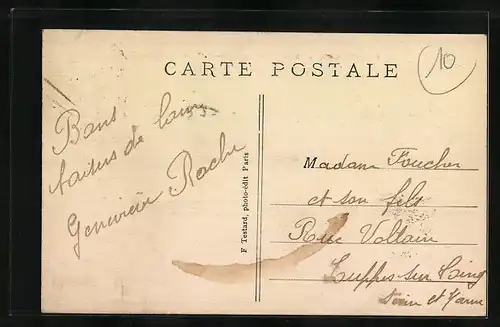 CARTE POSTALE
10
Bons
baisers de
Genevieve Roche
F Testard, photo-édit Paris
Madame Foucher
et son fils
Rue Voltair
Souppes-sur-Loing
Seine et Marne